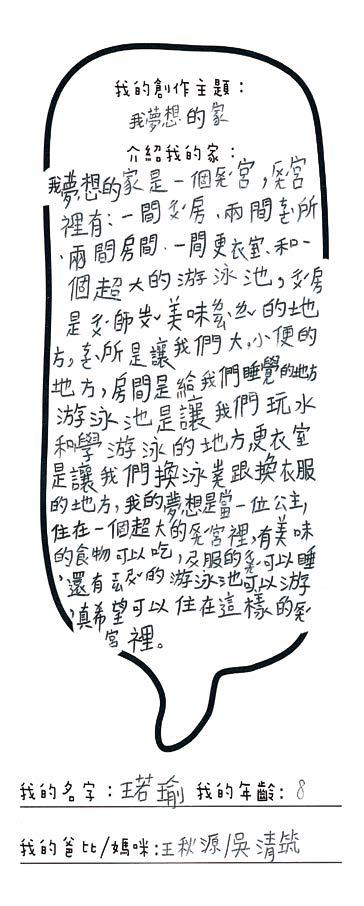 我的創作主題：
我夢想的家
介紹我的家：
我夢想的家是一個宮，宮
裡有：一間房、兩間所
、兩間房間、一間更衣室、和一
個超大的游泳池，房
是師美味的地
方，所是讓我們大、小便的
地方，房間是給我們睡覺的地方
游泳池是讓我們玩水
和學游泳的地方，更衣室
是讓我們換泳跟換衣服
的地方，我的夢想是當一位公主，
住在一個超大的宮裡，有美味
的食物可以吃，服的可以睡
，還有的游泳池可以游
，真希望可以住在這樣的
宮裡。
我的名字：王若瑜 我的年齡：8
我的爸比/媽咪：王秋源/吳清筑